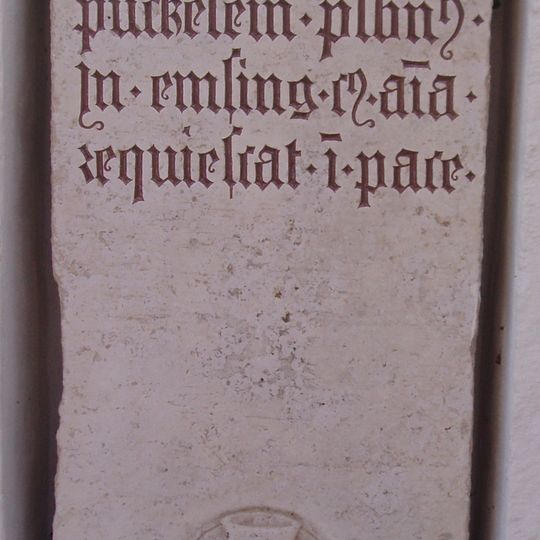 purkelem · plbnꝰ ·
jn · emſing · cꝰ · aīa ·
requieſcat · ī · pace ·